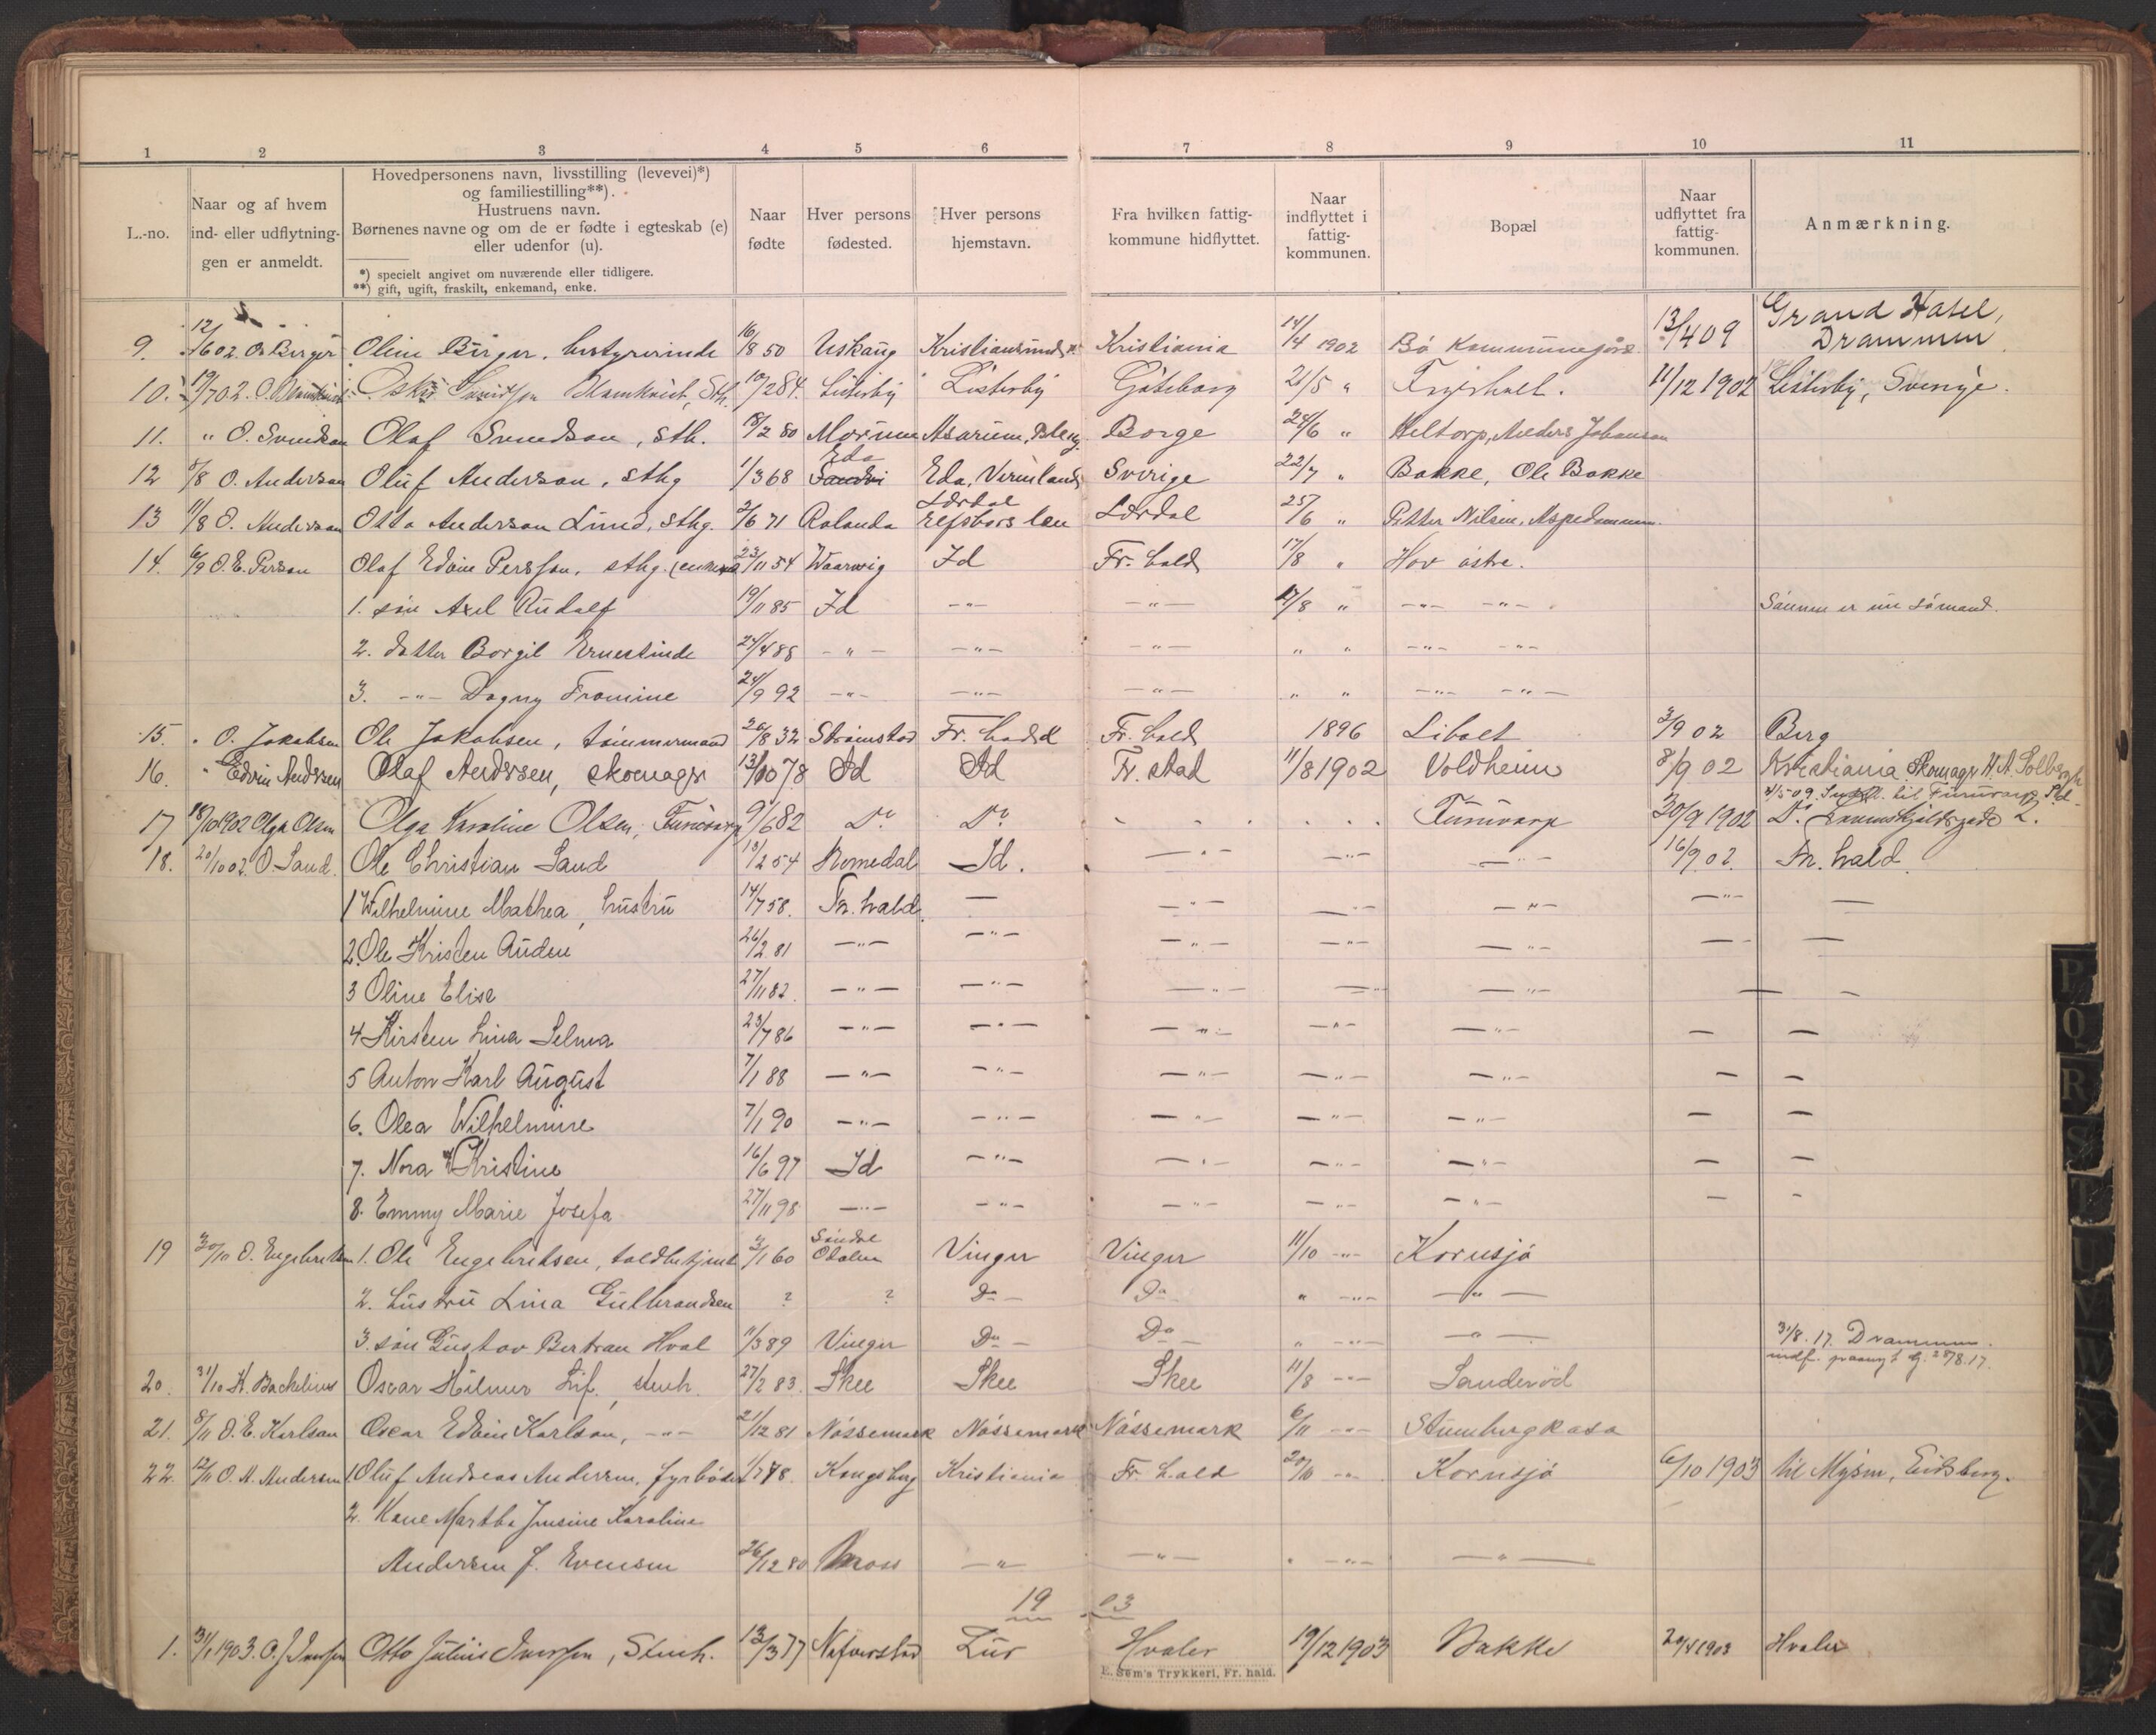 1 2 3 4 5 6 7 8 9 10 11
L.-no.
Naar og af hvem
ind- eller udflytnin-
gen er anmeldt.
Hovedpersonens navn, livsstilling (levevei)*)
og familiestilling**).
Hustruens navn.
Børnenes navne og om de er fødte i egteskab (e)
eller udenfor (u).
*) specielt angivet om nuværende eller tidligere.
**) gift, ugift, fraskilt, enkemand, enke.
Naar
fødte
Hver persons
fødested.
Hver persons
hjemstavn.
Fra hvilken fattig-
kommune hidflyttet.
Naar
indflyttet i
fattig-
kommunen.
Bopæl
Naar
udflyttet fra
fattig-
kommunen.
Anmærkning.
Grand Hotel,
9. 12/6 02. O. Birger Oline Birger, bestyrerinde 16/8 50 Uskaug Kristiansund N. Kristiania 14/4 1902 Bö Kommunegård 13/4 09 Drammen
10. 19/7 02. O. Oskar Listerby Listerby Göteborg 21/5 " 11/12 1902 Listerby, Sverige.
11. " O. Svendson Olaf Svendson, sth. 8/2 80 Morum Asarum, Bleg. Borge 24/6 " Heltorp, Anders Johanson
Eda
12 8/8 O. Anderson Oluf Anderson, sthg 1/3 68 Eda, Vermland Sverige 22/7 " Bakke, Ole Bakke
Lørdal
13 11/8 O. Anderson Otto Anderson Lund, sthg. 2/6 71 Rolanda elfsbors len Lørdal 25/6 " Petter Nilsen, Aspedammen.
14. 6/9 O. E. Person Olaf Edvin Persson, sthg. 23/11 54 Waarvig Id Fr. hald 17/8 " Hov östre.
1. sön Axel Rudolf 19/11 85 Id -"- -"- 17/8 " -"- -"- Sönnen er nu sömand.
2. datter Borgil Ernestinde 24/4 88 -"- -"- -"- " " -"- -"-
3. -"- Dagny Framine 24/9 92 -"- -"- -"- " " -"- -"-
15. " O. Jakobsen Ole Jakobsen, tömmermand 26/8 32 Strömstad Fr. hald Fr. hald 1896 Liholt 3/9 02 Berg
16. " Edvin Andersen Olaf Andersen, skomager 13/10 78 Id Id Fr. stad 11/8 1902 Voldheim 8/9 02 Kristiania. Skomager H. A. Solberg
4/5 09. til Furuvarp, Id.
17 18/10 1902 Olga Olsen Olga Karoline Olsen, Furuvarp 9/6 82 Do Do " " " Furuvarp 30/9 1902 Do. 2.
18. 20/10 02. O. Sand. Ole Christian Sand 18/2 54 Romedal Id. -"- -"- -"- 16/9 02. Fr. hald.
1 Wilhelmine Mathea, hustru 14/7 58. Fr. hald. — -"- -"- -"- -"- —
2. Ole Kristen Auden 26/2 81 -"- -"- -"- -"- -"- — —
3 Oline Elise 27/11 82. -"- -"- -"- -"- -"- — —
4 Kirsten Lina Selma 23/7 86 -"- -"- -"- -"- -"- — —
5 Anton Karl August 7/1 88 -"- -"- -"- -"- -"- — —
6. Olea Wilhelmine 7/1 90 -"- -"- -"- -"- -"- — —
7. Nora Kristine 16/6 97 Id -"- -"- -"- -"- — —
8. Emmy Marie Josefa 27/11 98 -"- -"- -"- -"- -"- — -
Söndre
19 30/10 O. Engebretsen 1. Ole Engebretsen, toldbetjent 3/1 60 Odalen Vinger Vinger 11/10 -"- Kornsjö
2. hustru Lina Gulbrandsen ? ? Do - Do " -"- -"-
3. sön Gustav Bertran Hval 11/3 89 Vinger Do - Do " -"- -"- 31/8. 17. Drammen.
28/8.17.
20. 31/10 K. Backelius Oscar Hilmer Lif, stenh. 27/2 83. Skee Skee Skee 11/8 -"- Sanderöd
21. 8/11 O. E. Karlson Oscar Edvin Karlson, -"- 21/12 81 Nössemark Nössemark Nössemark 6/11 -"- Stumbergkasa
22. 12/11 O. A. Andersen 1. Oluf Andreas Andersen, fyrböder 1/7 78. Kongsberg Kristiania Fr. hald 20/10 -"- Kornsjö 6/10 1903 til Mysen, Eidsberg.
2. Kone Martha Jensine Karoline
Andersen f. Evensen 26/12 80 Moss -"- -"- " -"- -"-
19 03
1. 31/1 1903. O. J. Iversen Otto Julius Iversen, Stenh. 13/3 77 Nafverstad Lur Hvaler 19/12 1903 Bakke 20/4 1903 Hvaler
E. Sem's Trykkeri, Fr. hald.
P
Q
R
S
T
U
V
X
Y
Z